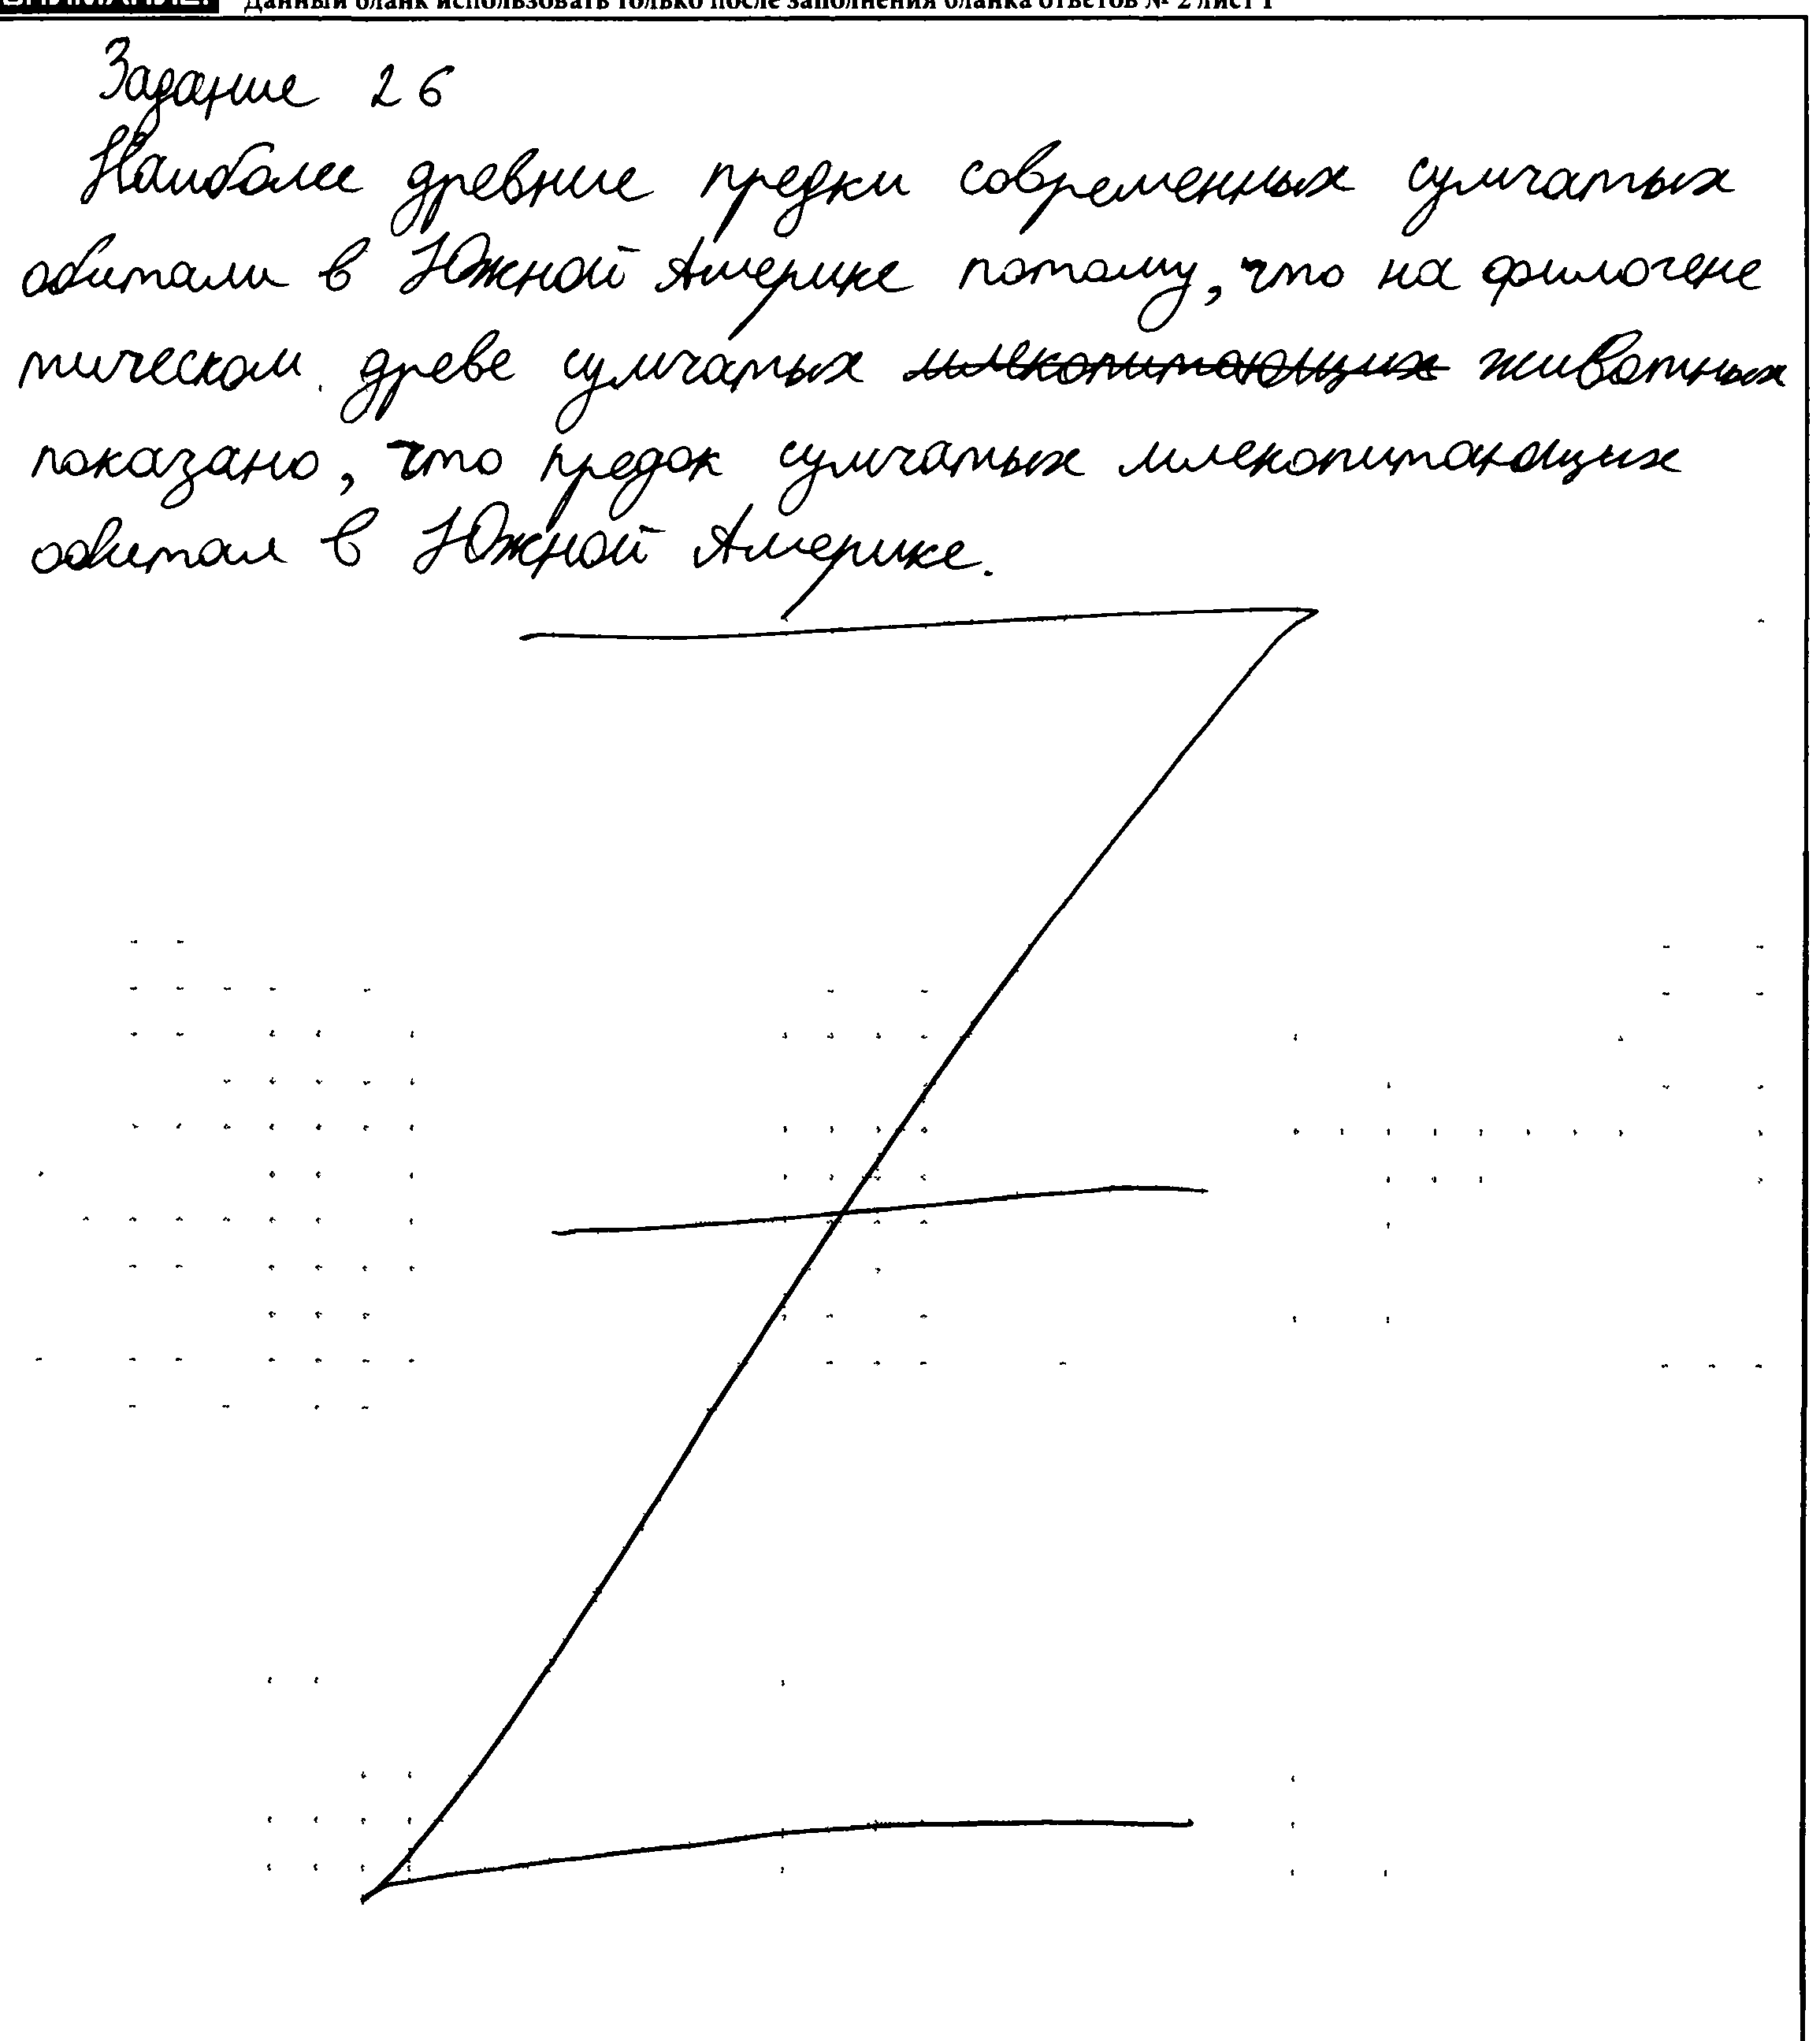 Данный бланк использовать только после заполнения бланка ответов № 2 лист 1
Задание 26
Наиболее древние предки современных сумчатых
обитали в Южной Америке потому, что на филогене
тическом древе сумчатых млекопитающих животных
показано, что предок сумчатых млекопитающих
обитал в Южной Америке.